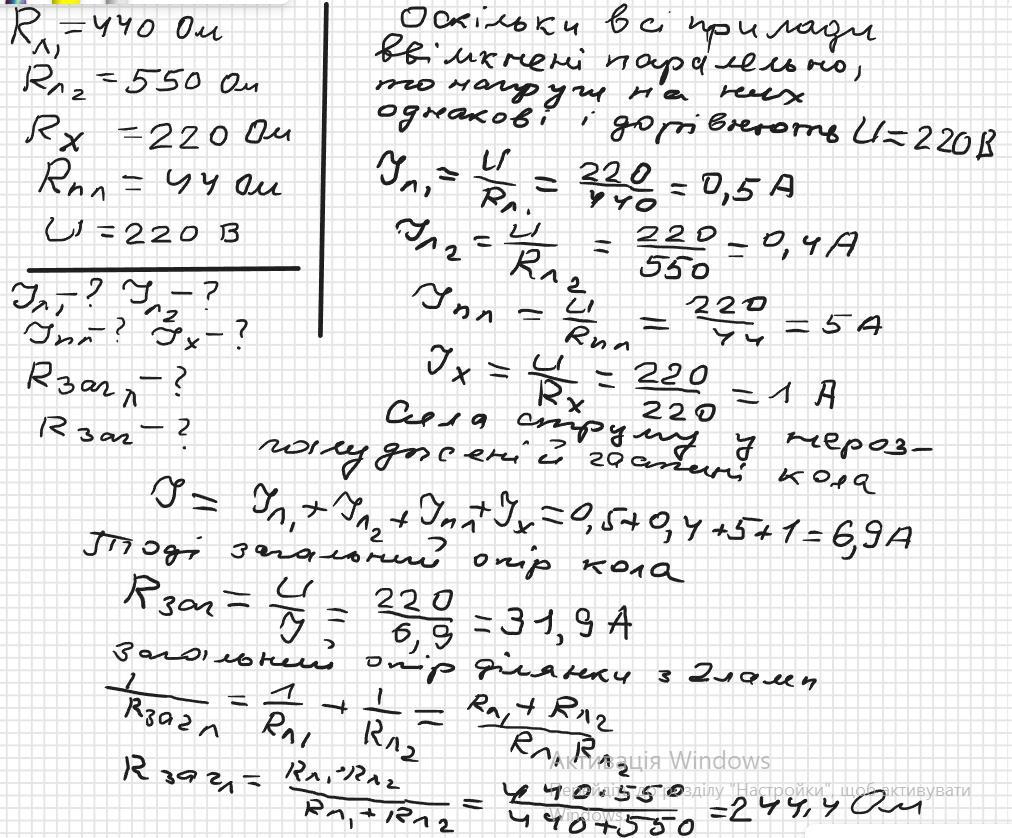 Rл₁ = 440 Ом
Rл₂ = 550 Ом
Rх = 220 Ом
Rпл = 44 Ом
U = 220 В
Iл₁ - ? Iл₂ - ?
Iпл - ? Iх - ?
Rзагл - ?
Rзаг - ?
Оскільки всі прилади
ввімкнені паралельно,
то напруги на них
однакові і дорівнюють U = 220 В
Iл₁ = U/Rл₁ = 220/440 = 0,5 А
Iл₂ = U/Rл₂ = 220/550 = 0,4 А
Iпл = U/Rпл = 220/44 = 5 А
Iх = U/Rх = 220/220 = 1 А
Сила струму у нероз-
галудженій частині кола
I = Iл₁ + Iл₂ + Iпл + Iх = 0,5 + 0,4 + 5 + 1 = 6,9 А
Тоді загальний опір кола
Rзаг = U/I = 220/6,9 = 31,9 А
загальний опір ділянки з 2 ламп
1/Rзагл = 1/Rл₁ + 1/Rл₂ = Rл₁ + Rл₂/Rл₁ Rл₂
Rзагл = Rл₁·Rл₂/Rл₁+Rл₂ = 440·550/440+550 = 244,4 Ом
Активація Windows
Перейдіть до розділу "Настройки", щоб активувати
Windows.